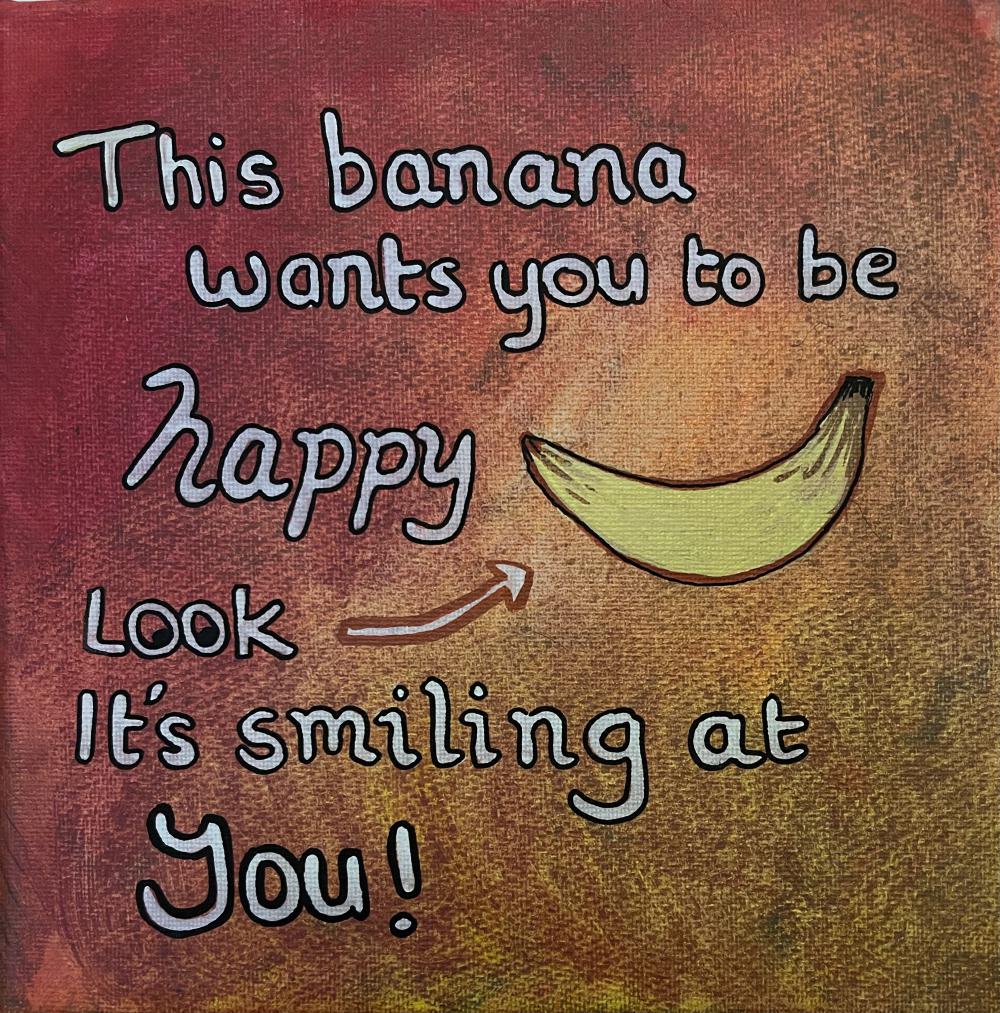 This banana
wants you to be
happy
Look
It's smiling at
You!